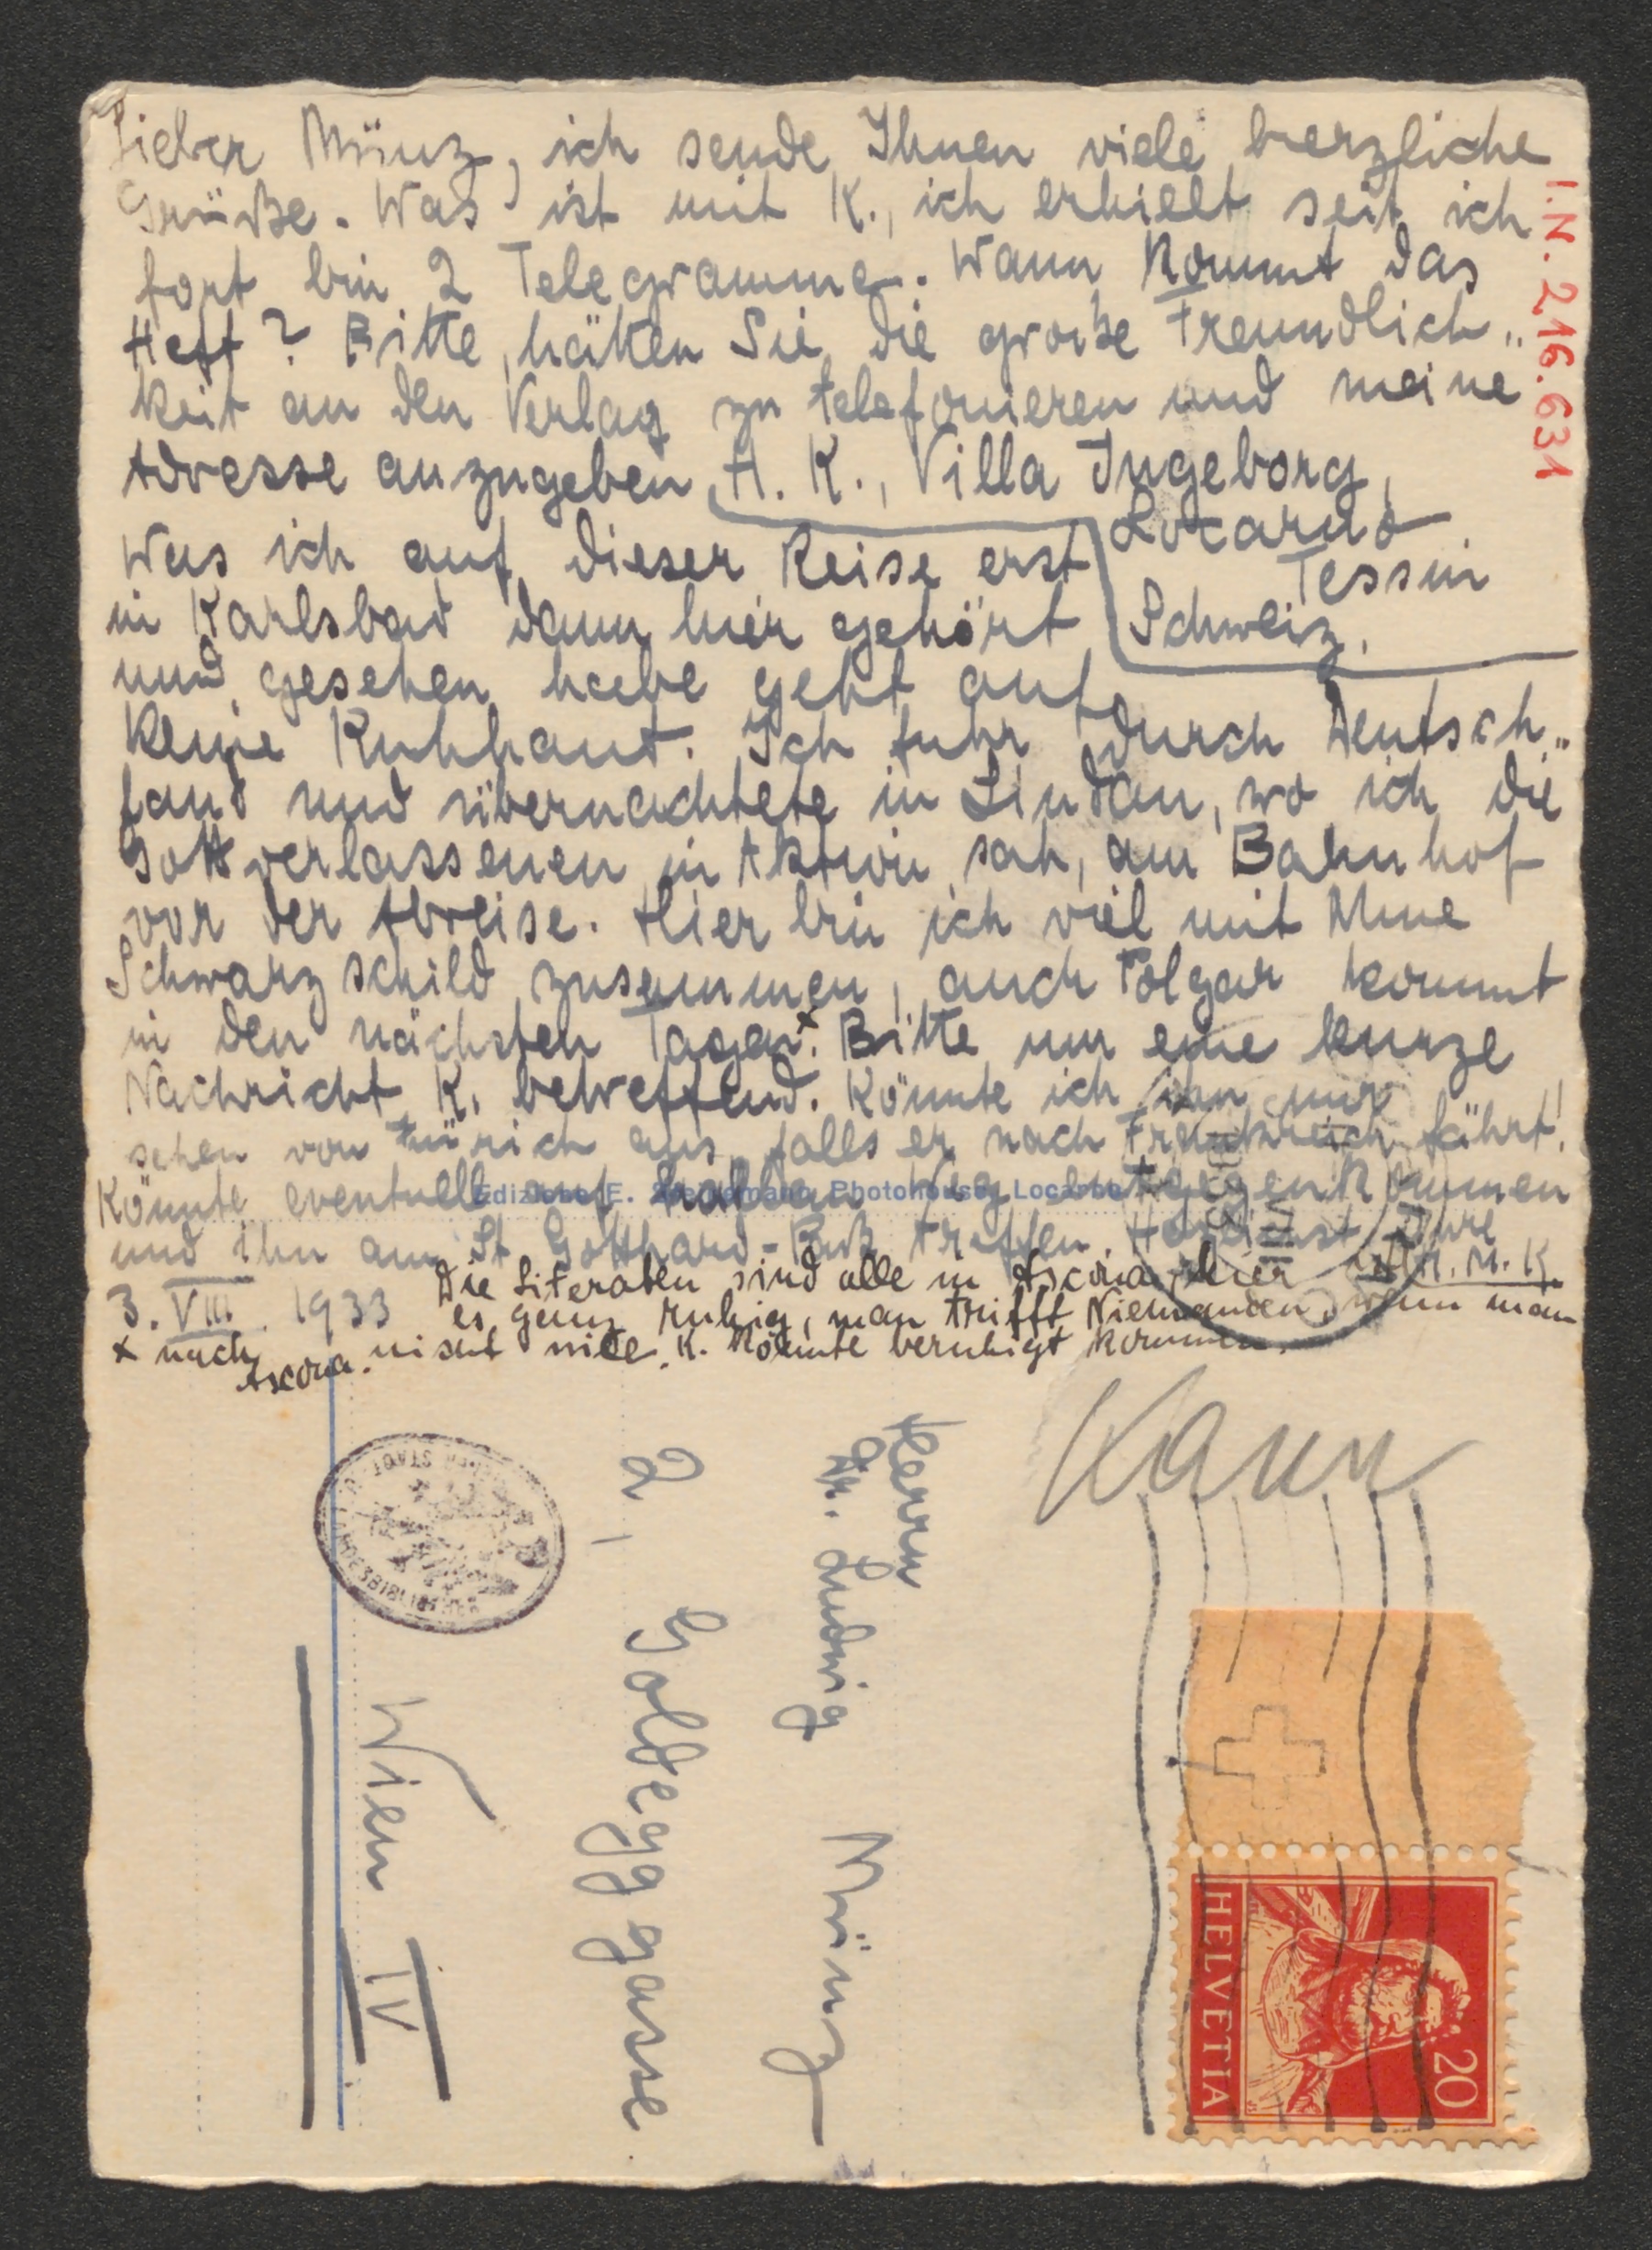 Lieber Münz, ich sende Ihnen viele herzliche
Grüße. Was ist mit K., ich erhielt seit ich
fort bin 2 Telegramme. Wann kommt das
Heft? Bitte, hätten Sie die große Freundlich„
keit an den Verlag zu telefonieren und meine
Adresse anzugeben A. K., Villa Ingeborg,
Locarno
Tessin
Schweiz.
Was ich auf dieser Reise erst
in Karlsbad dann hier gehört
und gesehen habe geht auf
keine Kuhhaut. Ich fuhr durch Deutsch„
land und übernachtete in Lindau, wo ich die
Gottverlassenen in Aktion sah, am Bahnhof
vor der Abreise. Hier bin ich viel mit Mme
Schwarzschild zusammen, auch Polgar kommt
in den nächsten Tagen x. Bitte um eine kurze
Nachricht K. betreffend. Könnte ich ihn nur
sehen von Zürich aus, falls er nach Frankreich fährt!
Könnte eventuell auf halbem Weg entgegenkommen
und ihn am St Gotthard-Paß treffen. Herzlichst Ihre
A. M. K.
3. VIII. 1933 Die Literaten sind alle in Ascona, hier ist
es ganz ruhig, man trifft Niemanden, wenn man
x nach Ascona. nicht will. K. könnte beruhigt kommen.
I.N. 216.631
Edizione E. Photohouse, Locarno
Herrn
Dr. Ludwig Münz
2, Goldegggasse
Wien IV
Kann
HELVETIA
20